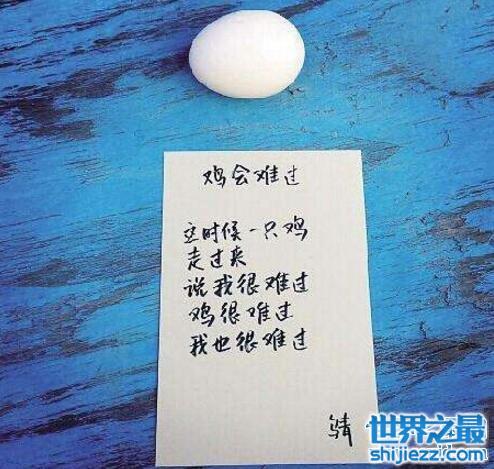 鸡会难过
这时候一只鸡
走过来
说我很难过
鸡很难过
我也很难过
骑
世界之最
shijiezz.com